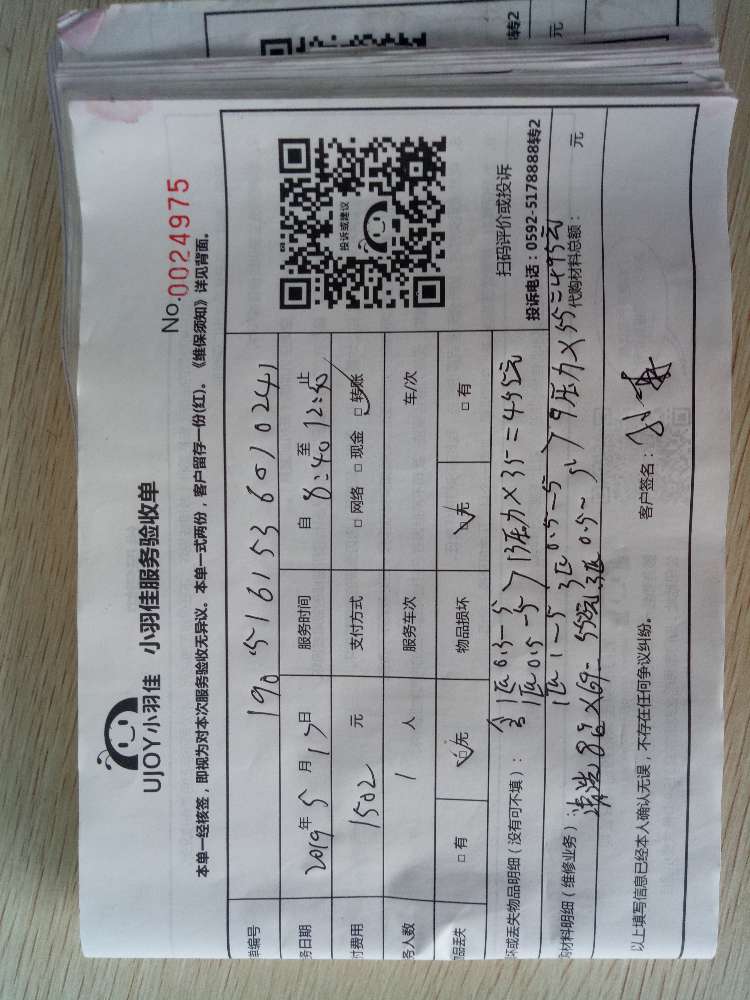 转2
元
No.0024975
UJOY小羽佳 小羽佳服务验收单
本单一经核签，即视为对本次服务验收无异议。本单一式两份，客户留存一份(红)。《维保须知》详见背面。
单编号 190516153601024
务日期 2019年5月17日 服务时间 自 8:40 至 12:40 止
付费用 1502 元 支付方式 □网络 □现金 □转账
务人数 1 人 服务车次 车/次
品丢失 □有 □无 物品损坏 □无 □有
投诉或建议
扫码评价或投诉
投诉电话：0592-5178888转2
坏或丢失物品明细（没有可不填）：
压力×35=455元
购材料明细（维修业务）： 代购材料总额： 元
9压力×55=495元
清洗8台×69=552元
以上填写信息已经本人确认无误，不存在任何争议纠纷。 客户签名：